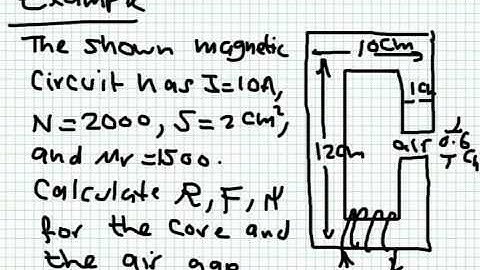 Example
The shown magnetic
Circuit has I=10A,
N=2000, S=2cm²,
and Mr=1500.
Calculate R, F, Ψ
for the core and
the air gap
10cm
1c
12cm
air
0.6